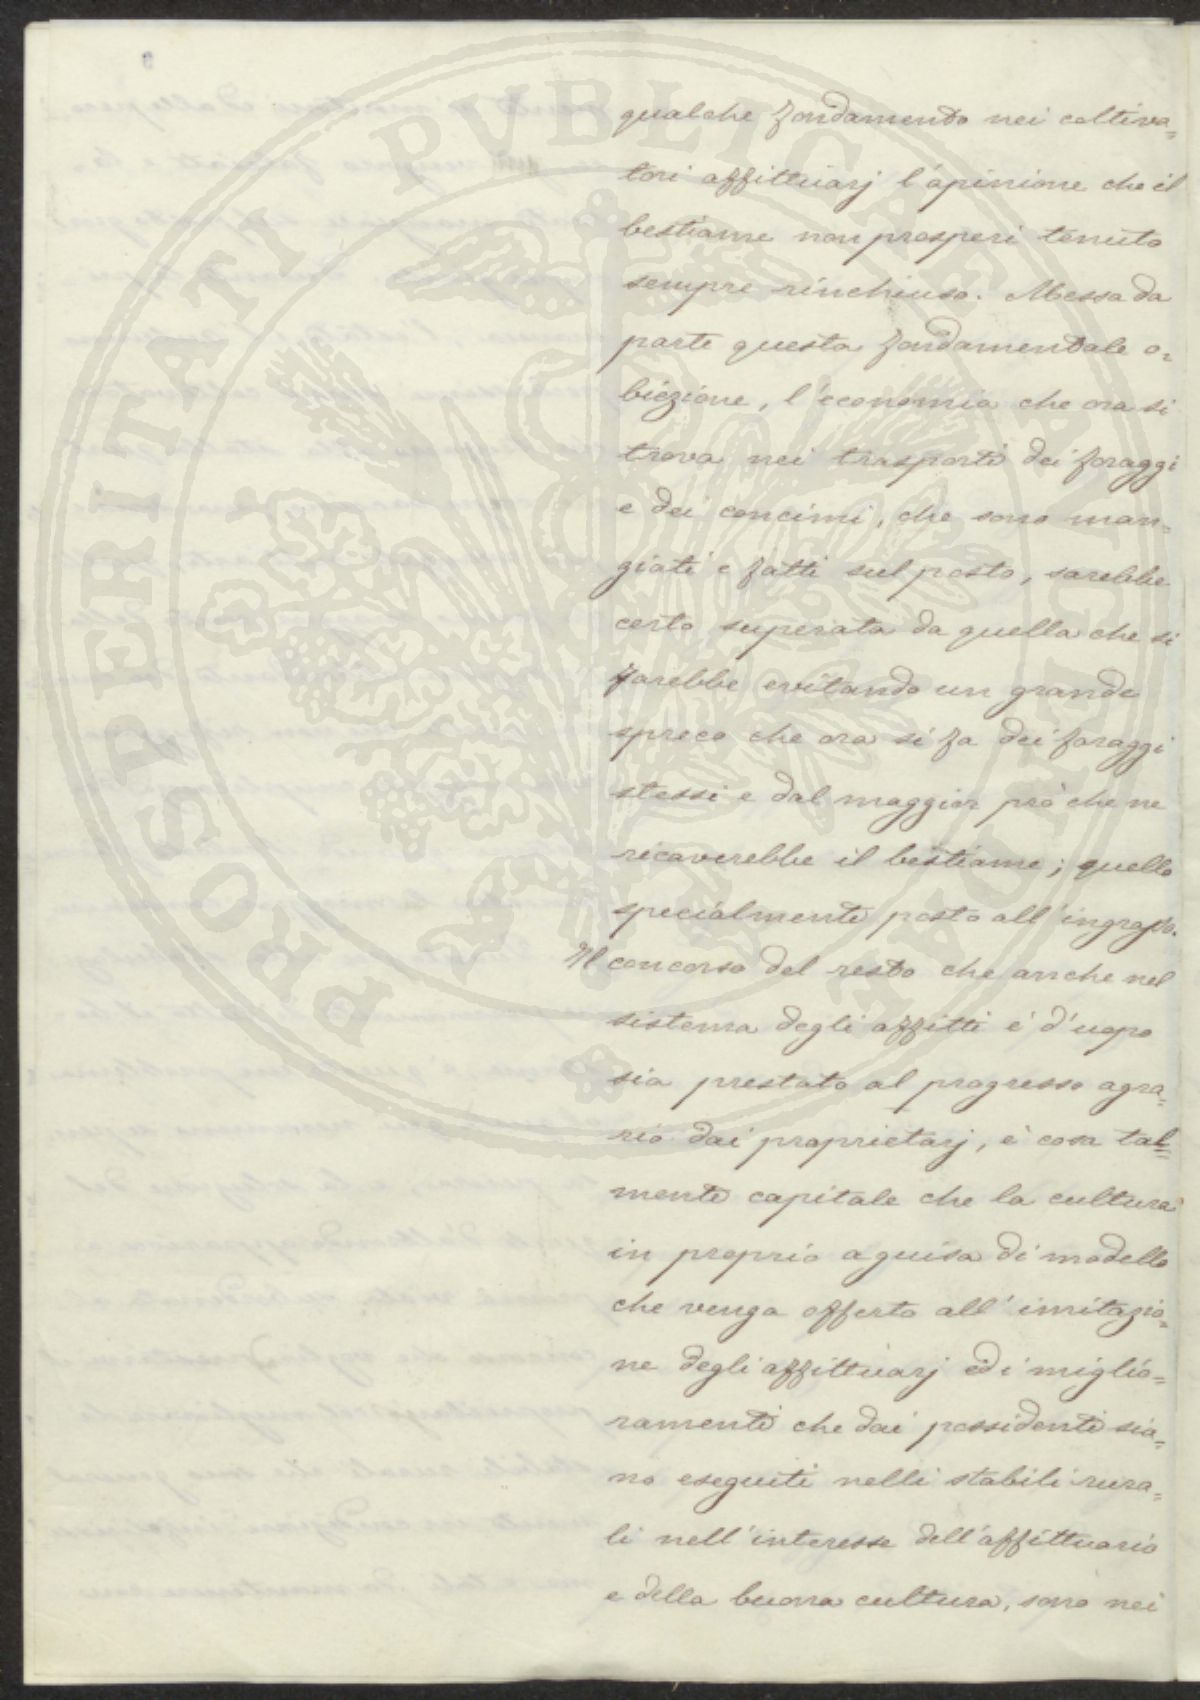 PROSPERITATI PUBLICAE AUGENDAE
qualche fondamento nei coltiva=
tori affittuarj l'opinione che il
bestiame non prosperi tenuto
sempre rinchiuso. Messa da
parte questa fondamentale o=
biezione, l'economia che ora si
trova nei trasporti dei foraggi
e dei concimi, che sono man=
giati e fatti sul posto, sarebbe
certo superata da quella che si
farebbe evitando un grande
spreco che ora si fa dei foraggi
stessi e dal maggior prò che ne
ricaverebbe il bestiame; quello
specialmente posto all'ingrasso.
Il concorso del resto che anche nel
sistema degli affitti è d'uopo
sia prestato al progresso agra=
rio dai proprietarj, è cosa tal=
mente capitale che la cultura
in proprio a guisa di modello
che venga offerto all'imitazio=
ne degli affittuarj ed i miglio=
ramenti che dai possidenti sia=
no eseguiti nelli stabili rura=
li nell'interesse dell'affittuario
e della buona cultura, sono nei